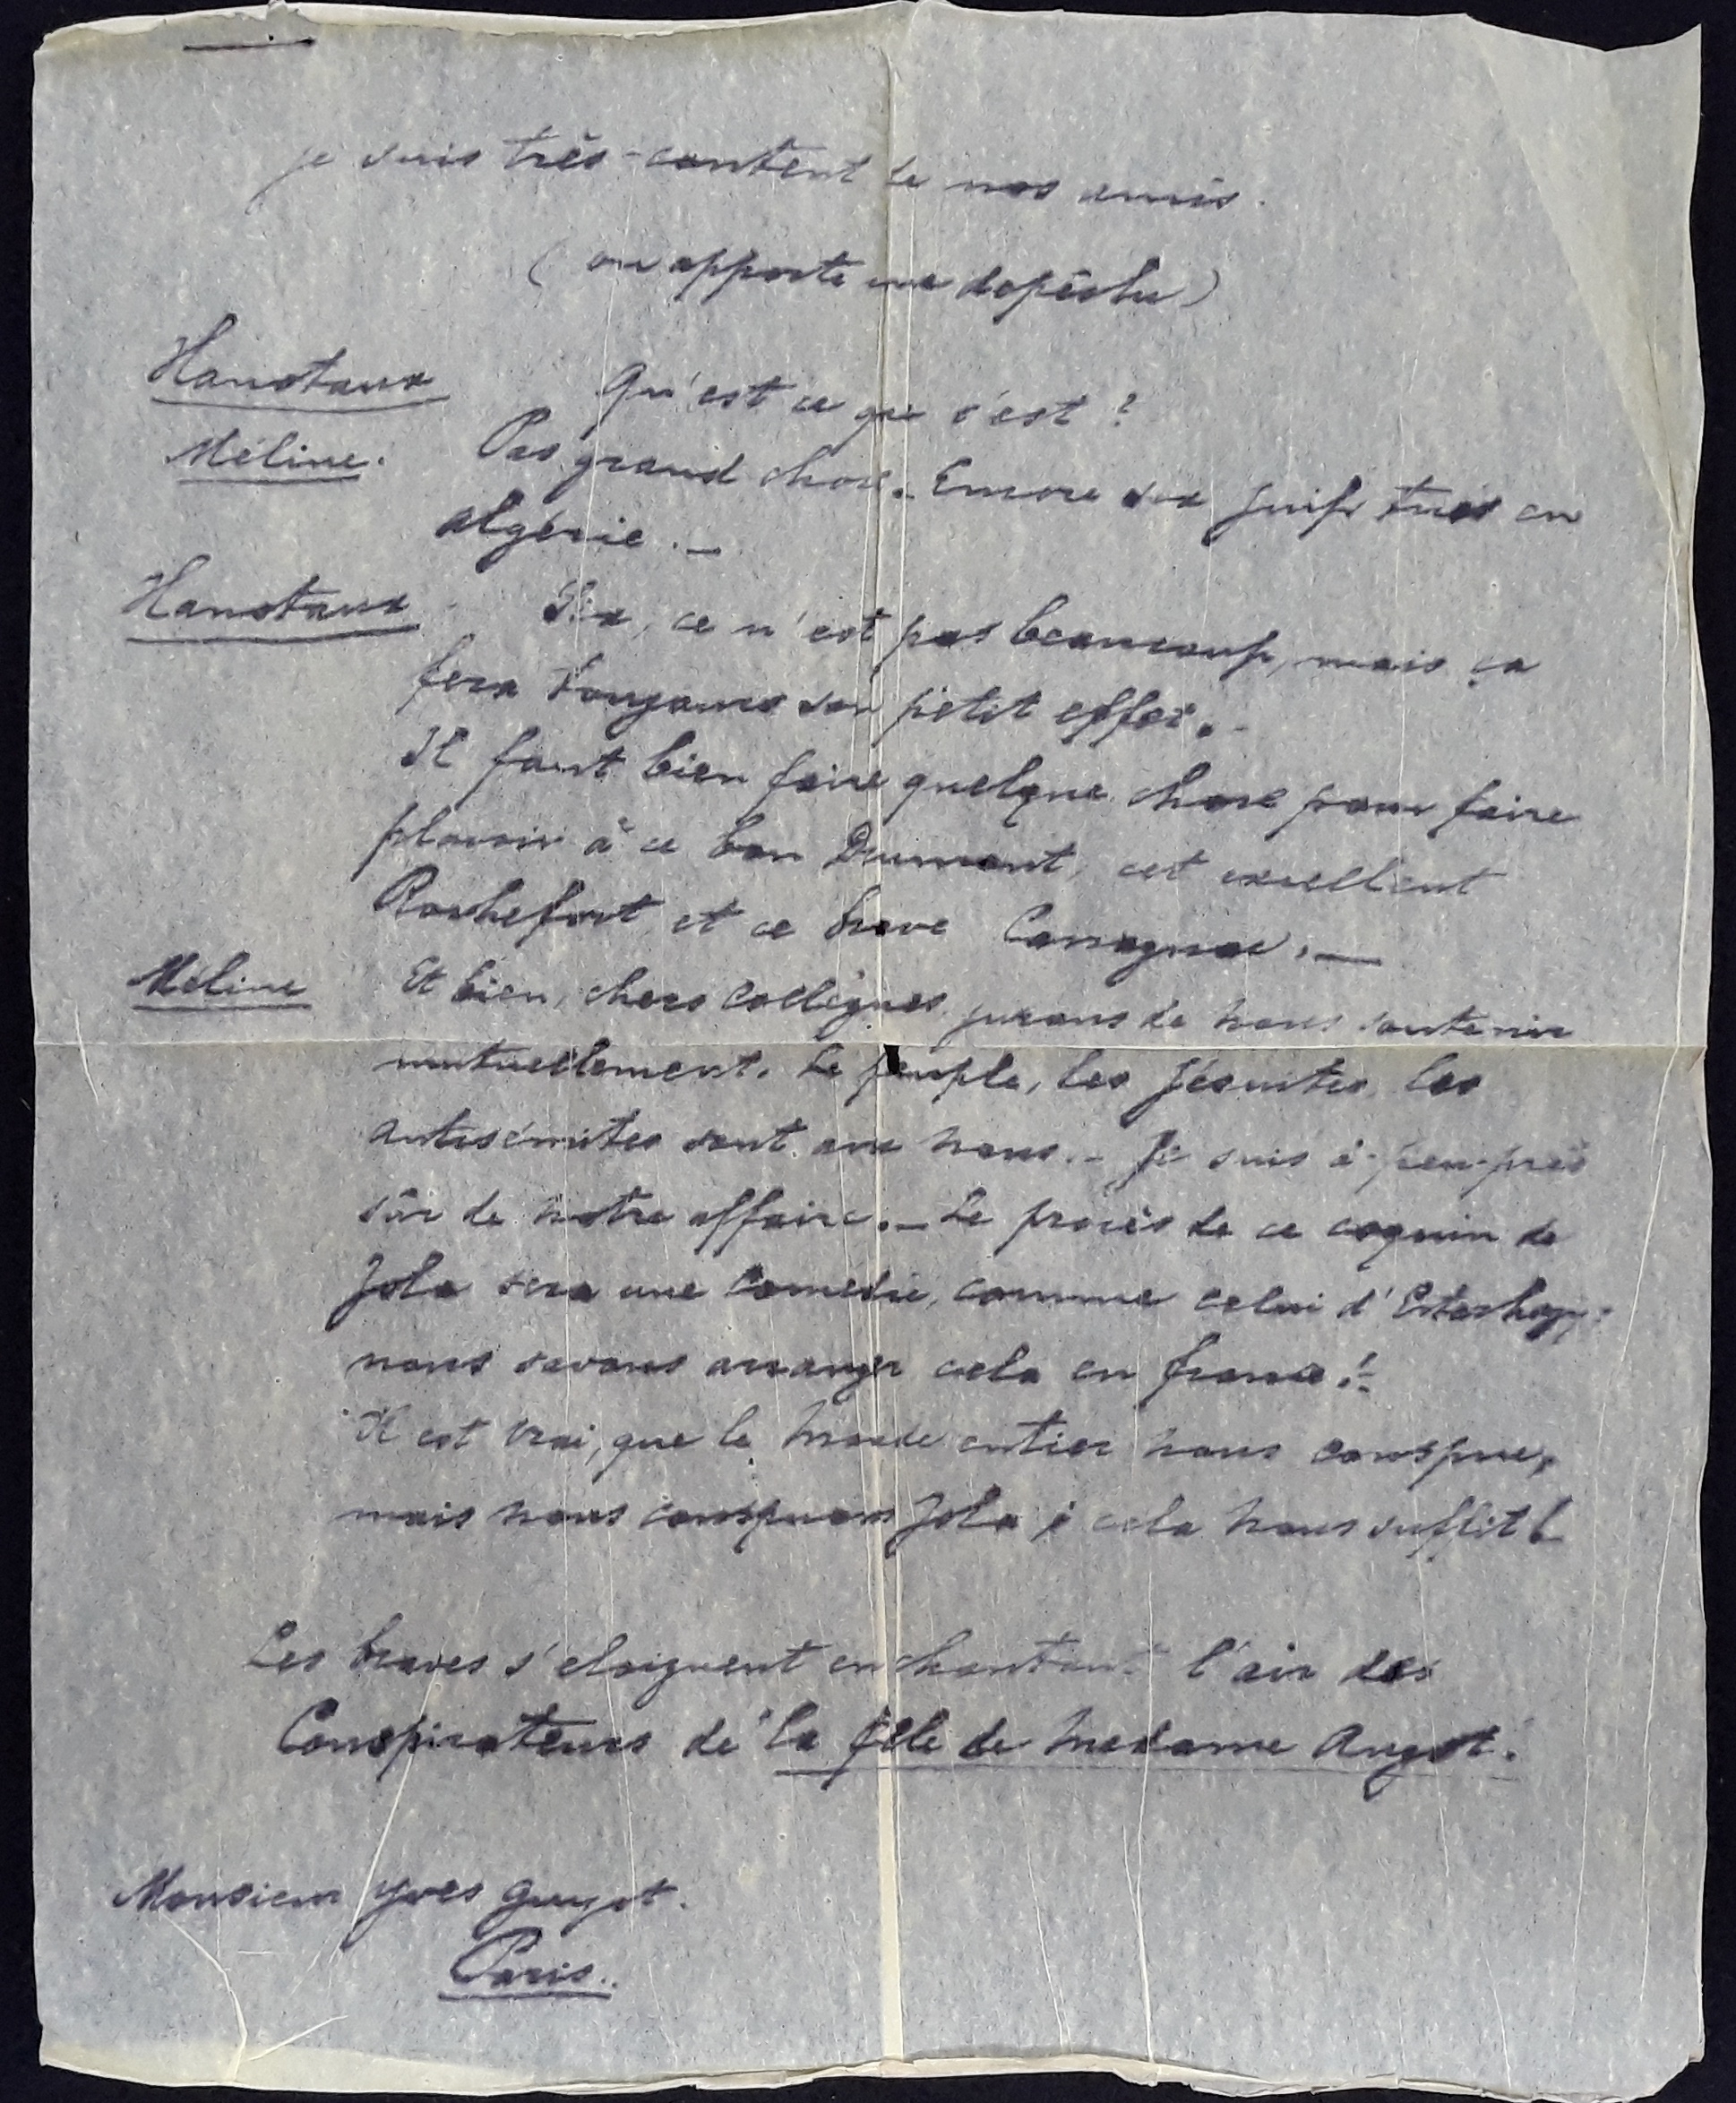 je suis très-content de nos amis.
(on apporte une dépêche)
Hanotaux Qu'est ce que s'est ?
Méline. Pas grand chose. Encore six juifs tués en
Algérie. _
Hanotaux Six, ce n'est pas beaucoup, mais ça
fera toujours son petit effet. -
Il faut bien faire quelque chose pour faire
plaisir à ce bon Drumont, cet excellent
Rochefort et ce brave Cassagnac. _
Méline Et bien, chers collègues, jurons de nous soutenir
mutuellement. Le peuple, les Jésuites, les
antisémites sont avec nous. - Je suis à-peu-près
sûr de notre affaire. _ Le procès de ce coquin de
Zola sera une comédie, comme celui d'Esterhazy:
nous savons arranger cela en france! -
Il est vrai, que le monde entier nous conspue,
mais nous conspuons Zola; cela nous suffit!
Les braves s'éloignent en chantant l'air des
Conspirateurs de la fille de Madame Angot.
Monsieur Yves Guyot.
Paris..